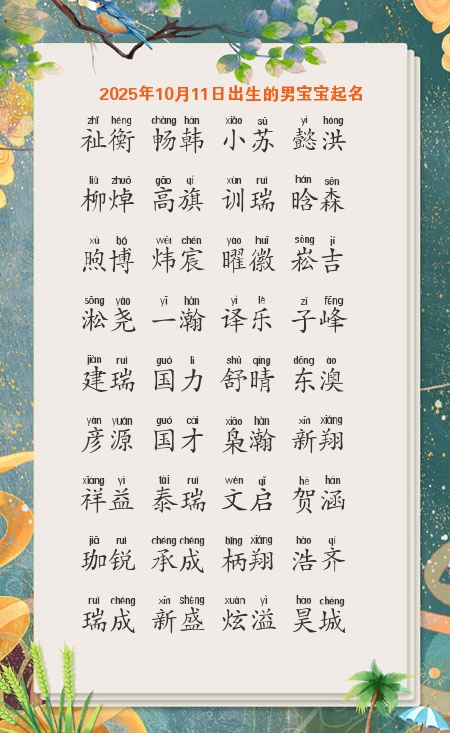 2025年10月11日出生的男宝宝起名
zhǐ héng chàng hán xiǎo sū yì hóng
祉衡 畅韩 小苏 懿洪
liǔ zhuō gāo qí xùn ruì hán sēn
柳焯 高旗 训瑞 晗森
xù bó wěi chén yào huī sōng jí
煦博 炜宸 曜徽 崧吉
sōng yáo yī hàn yì lè zǐ fēng
淞尧 一瀚 译乐 子峰
jiàn ruì guó lì shū qíng dōng ào
建瑞 国力 舒晴 东澳
yàn yuán guó cái xiāo hàn xīn xiáng
彦源 国才 枭瀚 新翔
xiáng yì tài ruì wén qǐ hè hán
祥益 泰瑞 文启 贺涵
jiā ruì chéng chéng bǐng xiáng hào qí
珈锐 承成 柄翔 浩齐
ruì chéng xīn shèng xuàn yì hào chéng
瑞成 新盛 炫溢 昊城